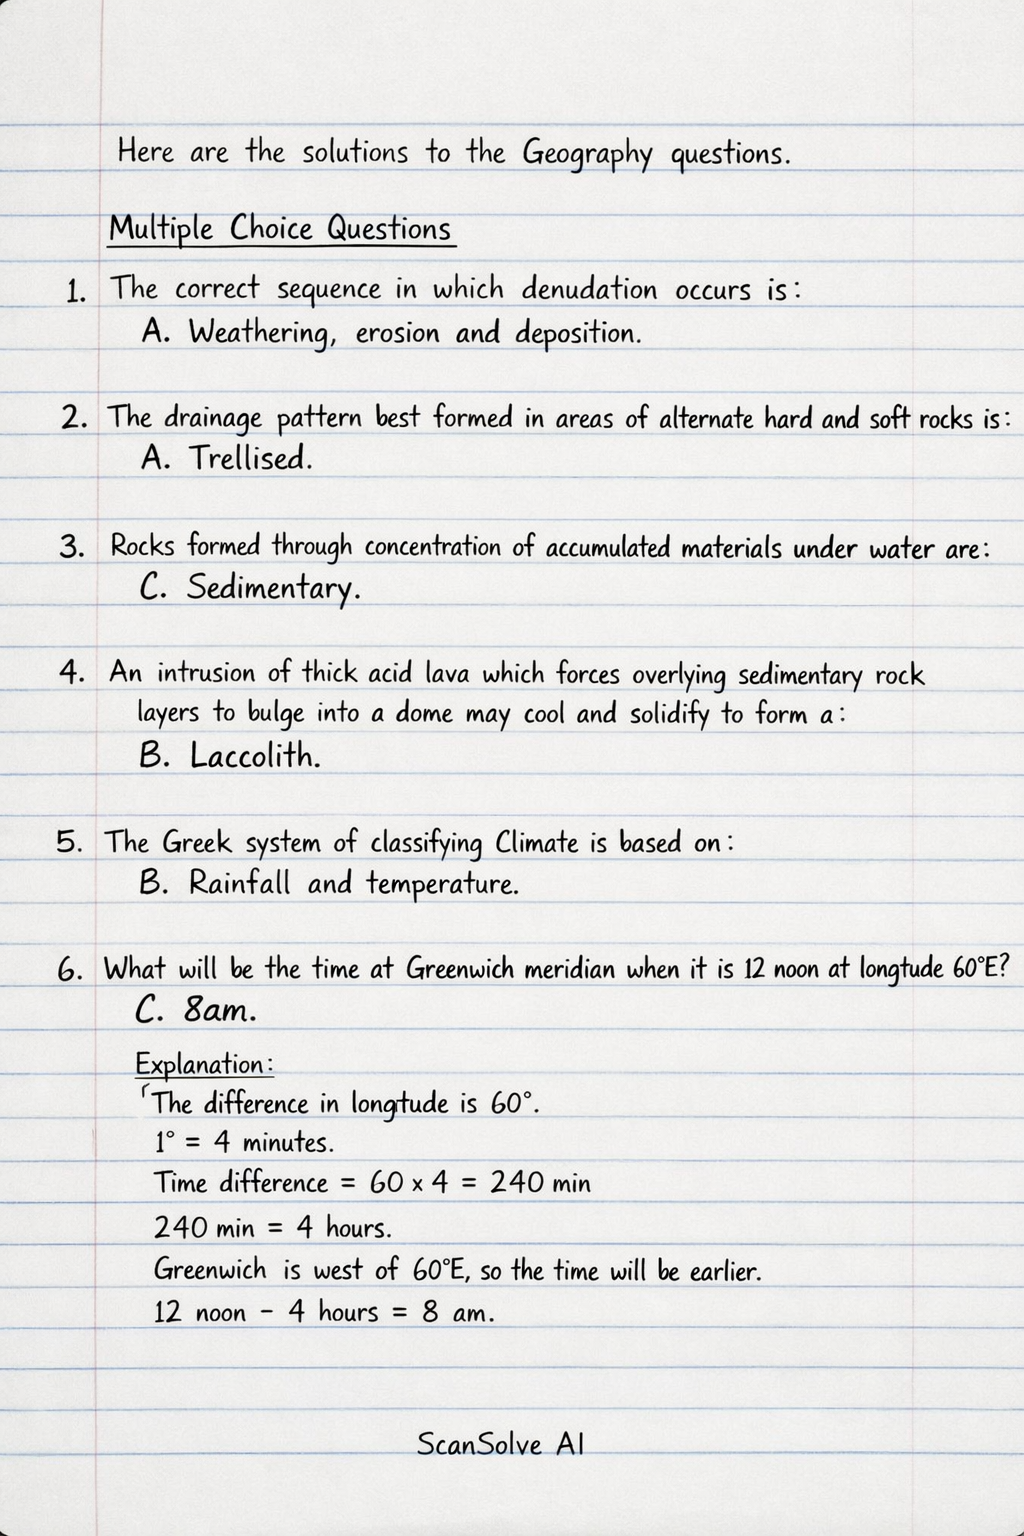 Here are the solutions to the Geography questions.
Multiple Choice Questions
1. The correct sequence in which denudation occurs is:
A. Weathering, erosion and deposition.
2. The drainage pattern best formed in areas of alternate hard and soft rocks is:
A. Trellised.
3. Rocks formed through concentration of accumulated materials under water are:
C. Sedimentary.
4. An intrusion of thick acid lava which forces overlying sedimentary rock
layers to bulge into a dome may cool and solidify to form a:
B. Laccolith.
5. The Greek system of classifying Climate is based on:
B. Rainfall and temperature.
6. What will be the time at Greenwich meridian when it is 12 noon at longtude 60°E?
C. 8am.
Explanation:
The difference in longtude is 60°.
1° = 4 minutes.
Time difference = 60 x 4 = 240 min
240 min = 4 hours.
Greenwich is west of 60°E, so the time will be earlier.
12 noon - 4 hours = 8 am.
ScanSolve AI